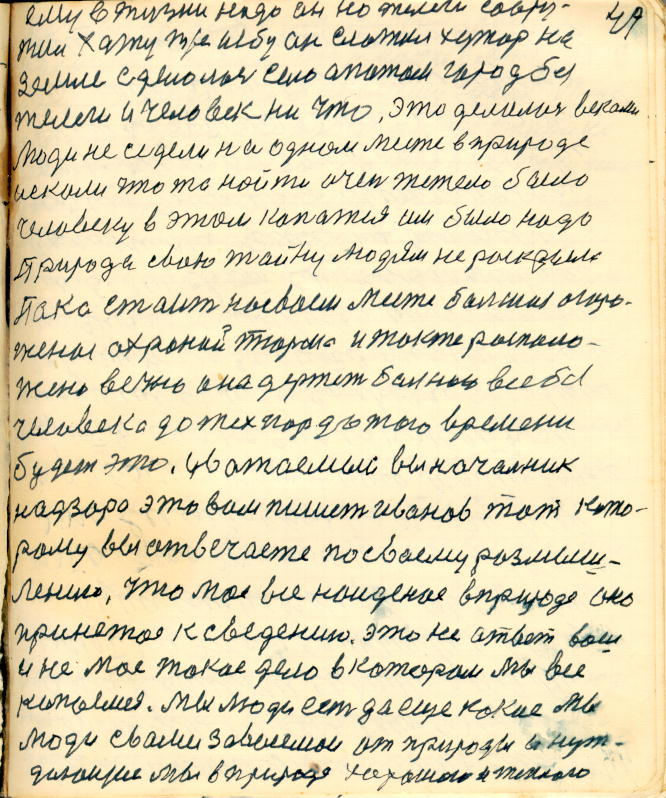 49
ему в жизни надо он но телеги соору-
жил хату
он сложил хутор на
земле сделолся село апотом город бы
телеги и человек ни что, это делолся веками
люди не седели на одном месте в природе
искали что то нойти очен тежело было
человеку в этом капатся им было надо
Природа свою тайну людям не роскрыла
Пака стоит насваем месте
охраной тюрма и также располо-
жена вечно она держет
в себе
человека до тех пор до того времени
будет это. Уважаемый вы началник
надзора это вам пишет иванов тот кото-
рому вы отвечаете посваему розмыш-
лению, что мое все найденое вприроде оно
принетое к сведению. это не ответ ваш
и не мое такое дело в котором мы все
копаемся. Мы люди есть да еще какие мы
люди свами зависемои от природы и нуж-
дающие мы в природе хорошого и теплого